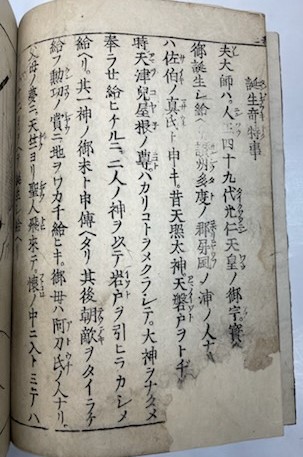 誕生奇特事
夫大師ハ。人王四十九代光仁天皇ノ御宇。寳
御誕生シ給ヘ 讃州多度ノ郡屏風ノ浦ノ人ナリ
ハ佐伯ノ真氏ト申キ。昔天照太神天磐戸ヲトヂ
時天津兒屋根ノ尊。ハカリコトヲメクラシテ。大神ヲナクメ
奉ラサセ給ヒケルニ。二人ノ神ヲ以テ岩戸ヲ引ヒラカシメ
給ヘリ。其一神ノ御末ト申傳ヘタリ 其後朝敵ヲタイラケ
給フ勲功ノ賞ニ地ヲワカチ給ヒキ。御母ハ阿刀氏ノ人ナリ
父母ノ夢ニ。天竺ヨリ聖人飛来テ。懐ノ中ニ入トミテハ